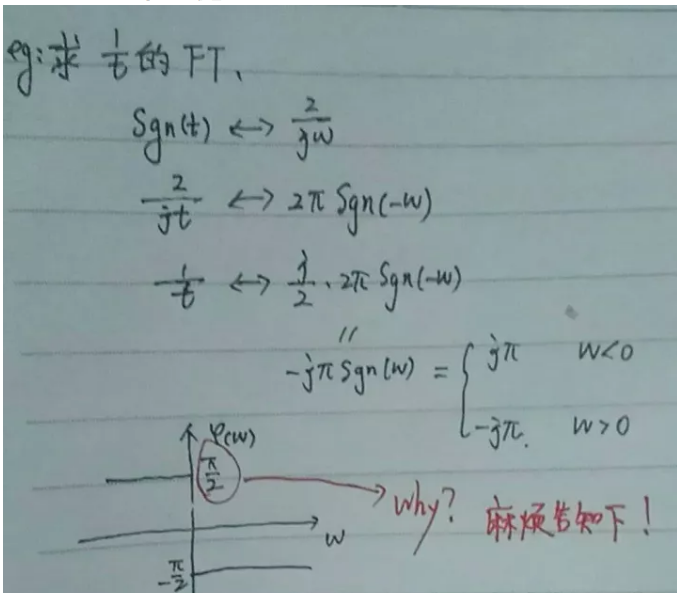 eg: 求 1/t 的 FT、
Sgn(t) ↔ 2/jw
2/jt ↔ 2π Sgn(-w)
1/t ↔ j/2 · 2π Sgn(-w)
〃
-jπ Sgn(w) = { jπ w<0
-jπ. w>0
φ(w)
π/2 → why? 麻烦告知下!
w
-π/2